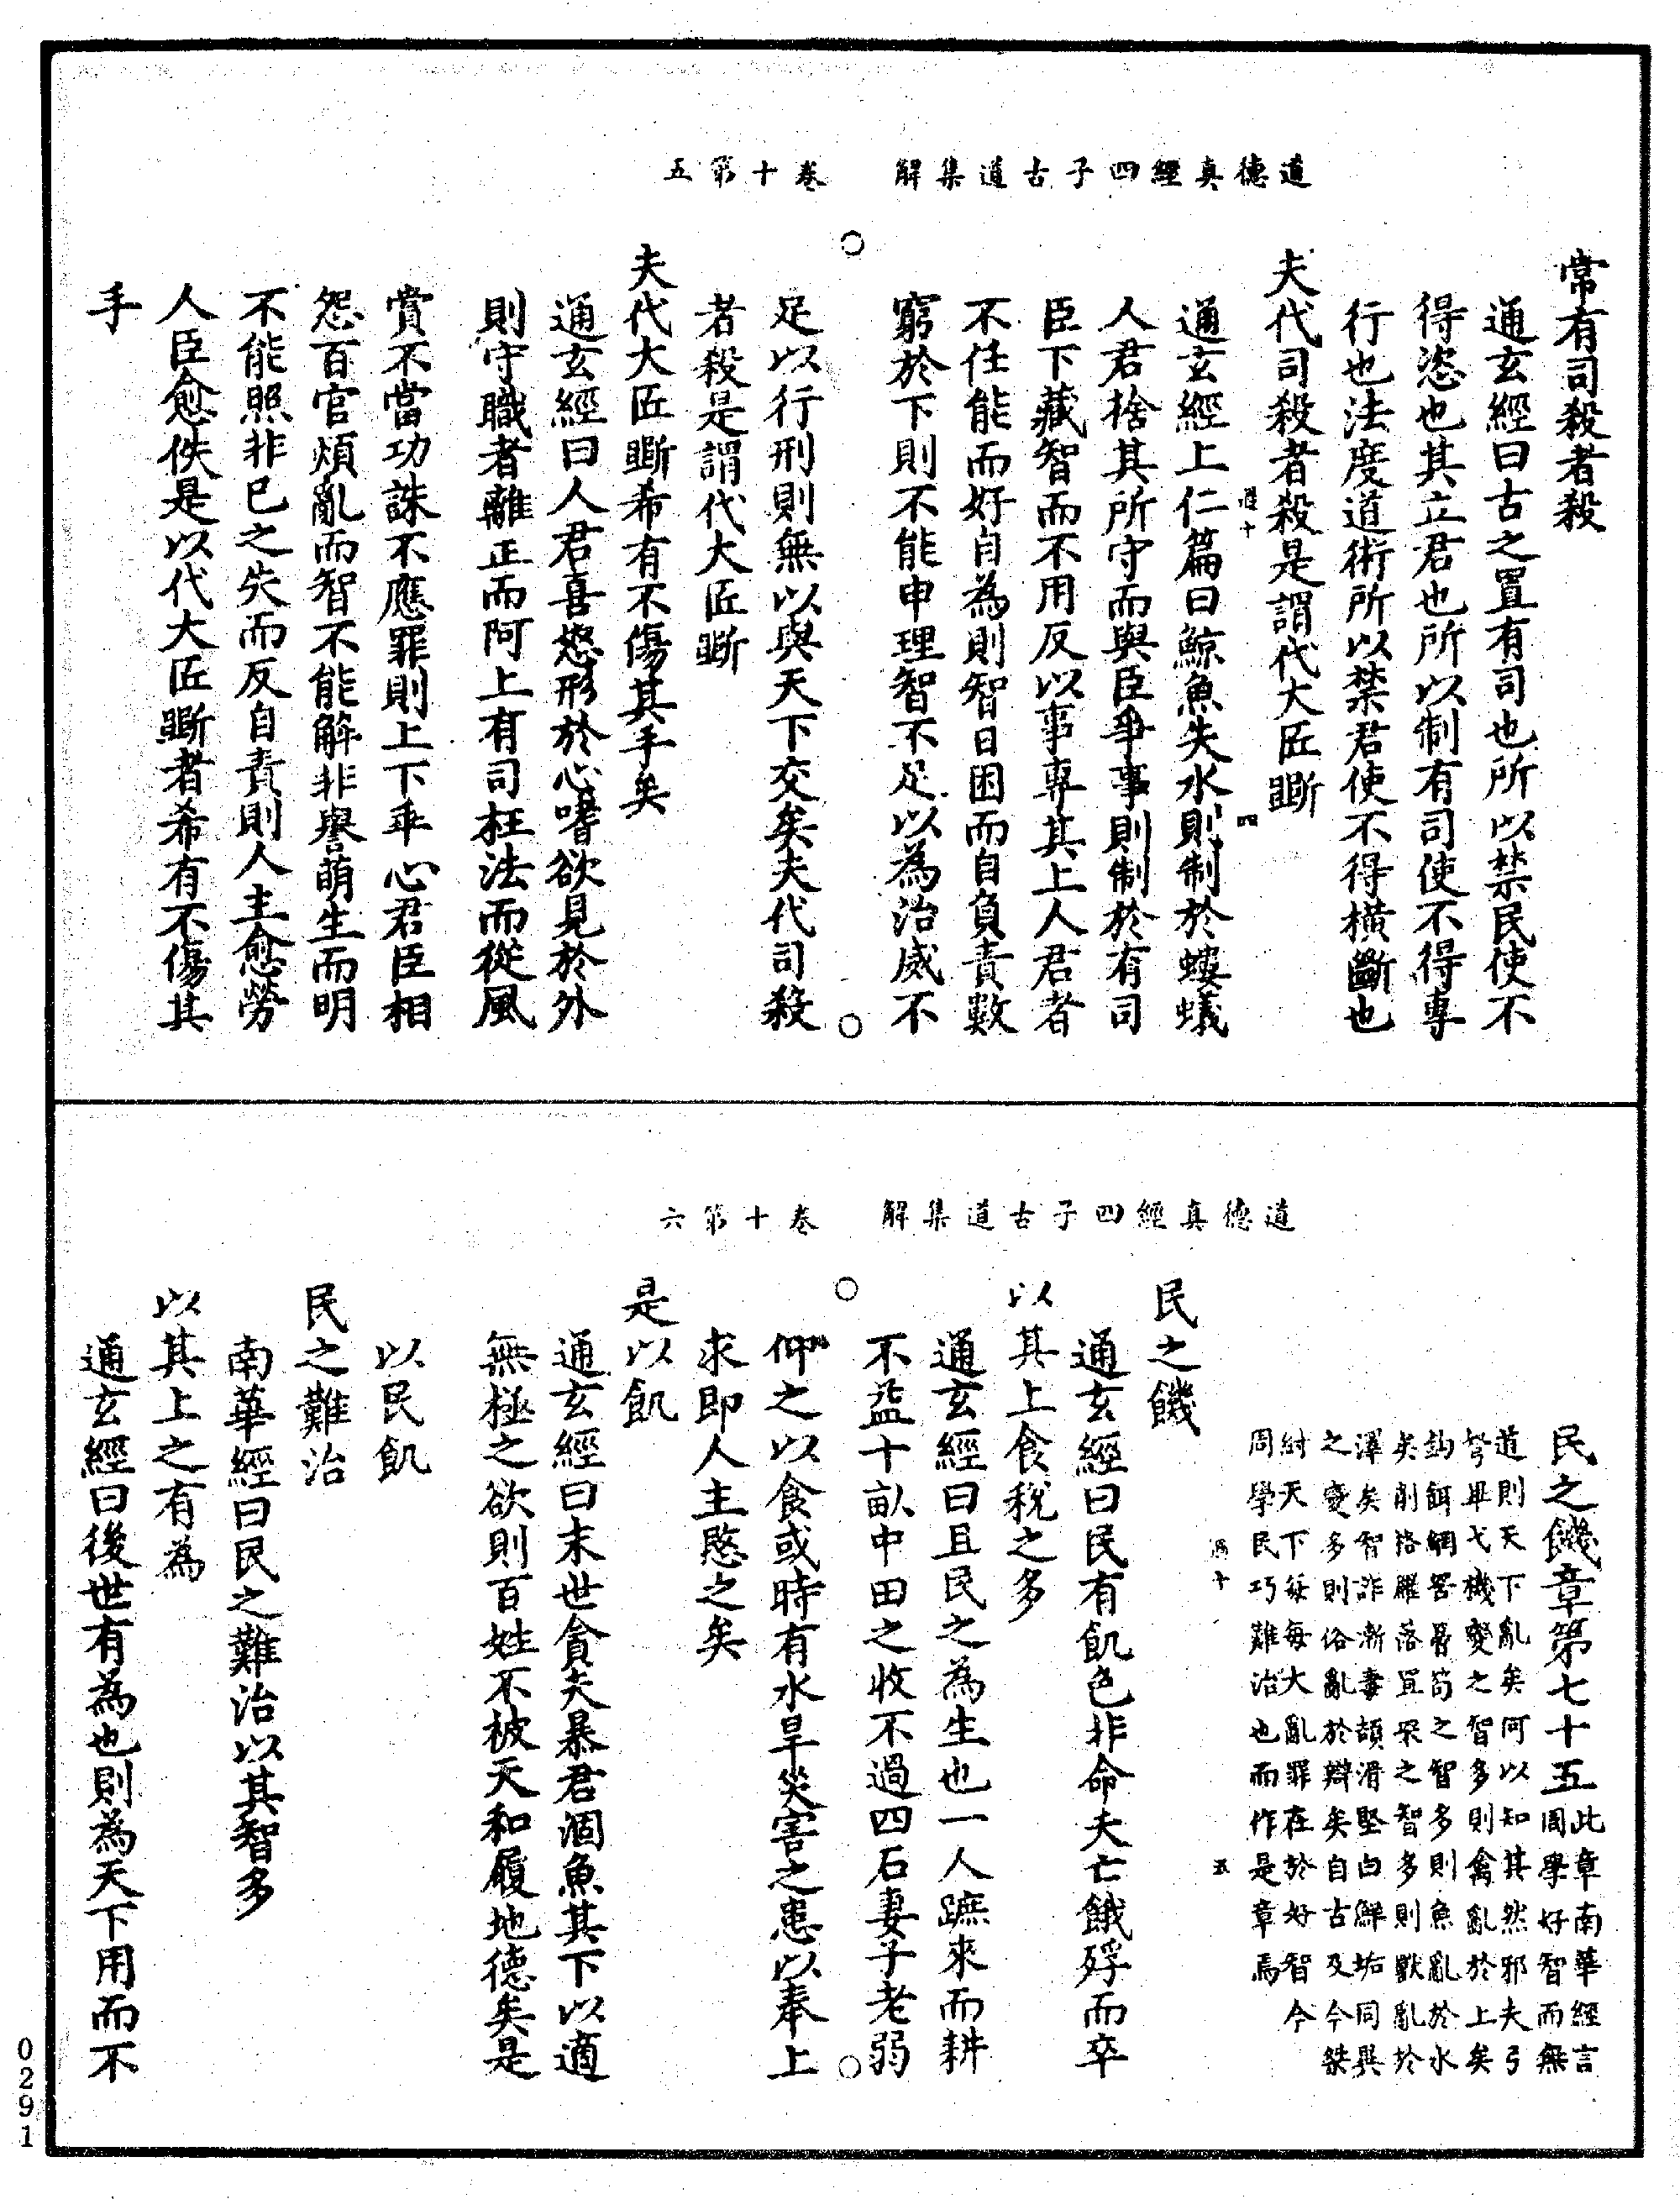 道德真經四子古道集解　卷十第五
常有司殺者殺
通玄經曰古之置有司也所以禁民使不
得恣也其立君也所以制有司使不得專
行也法度道術所以禁君使不得橫斷也
夫代司殺者殺是謂代大匠斲
過十
四
通玄經上仁篇曰鯨魚失水則制於螻蟻
人君捨其所守而與臣爭事則制於有司
臣下藏智而不用反以事專其上人君者
不任能而好自為則智日困而自負責數
窮於下則不能申理智不足以為治威不
足以行刑則無以與天下交矣夫代司殺
者殺是謂代大匠斲
夫代大匠斲希有不傷其手矣
通玄經曰人君喜怒形於心嗜欲見於外
則守職者離正而阿上有司枉法而從風
賞不當功誅不應罪則上下乖心君臣相
怨百官煩亂而智不能解非譽萌生而明
不能照非已之失而反自責則人主愈勞
人臣愈佚是以代大匠斲者希有不傷其
手
道德真經四子古道集解　卷十第六
民之饑章第七十五
此章南華經言
周學好智而無
道則天下亂矣何以知其然邪夫弓
弩畢弋機變之智多則禽亂於上矣
鈎餌網罟罾笱之智多則魚亂於水
矣削格羅落罝罘之智多則獸亂於
澤矣智詐漸毒頡滑堅白解垢同異
之變多則俗亂於辯矣自古及今桀
紂天下每每大亂罪在於好智今
周學民巧難治也而作是章焉
過十
五
民之饑
通玄經曰民有飢色非命夫亡餓殍而卒
以其上食稅之多
通玄經曰且民之為生也一人蹠來而耕
不益十畝中田之收不過四石妻子老弱
仰之以食或時有水旱災害之患以奉上
求即人主愍之矣
是以飢
通玄經曰末世貪夫暴君涸魚其下以適
無極之欲則百姓不被天和履地德矣是
以民飢
民之難治
南華經曰民之難治以其智多
以其上之有為
通玄經曰後世有為也則為天下用而不
0291